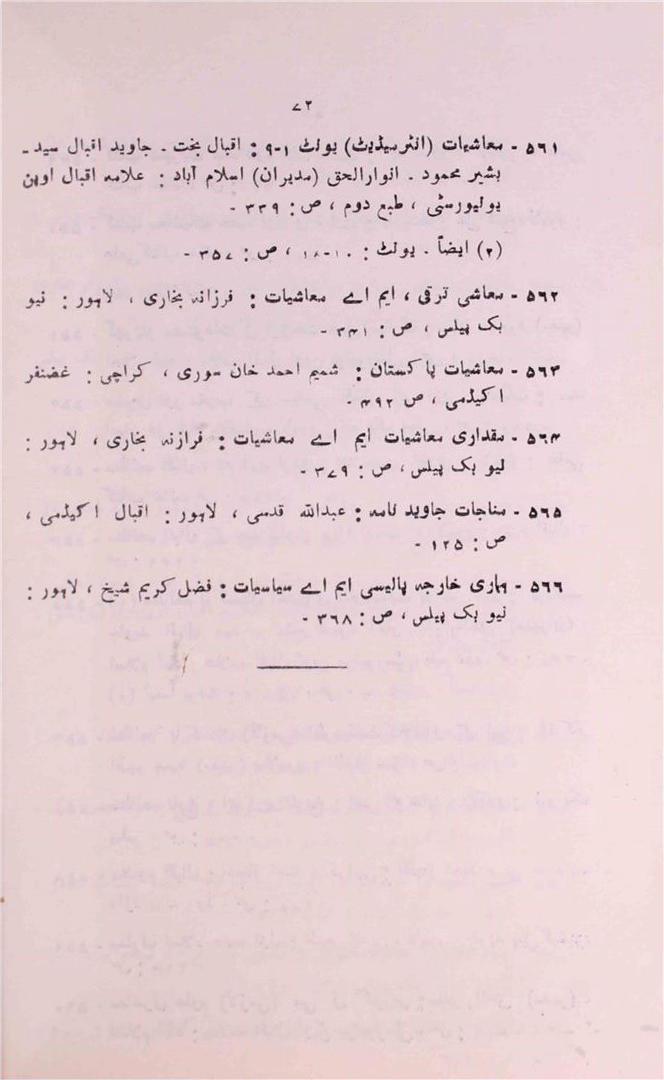 ۷۲
۵۶۱ - معاشیات (انٹرمیڈیٹ) یونٹ ۱-۹ : اقبال بخت - جاوید اقبال سید -
بشیر محمود - انوارالحق (مدیران) اسلام آباد : علامہ اقبال اوپن
یونیورسٹی ، طبع دوم ، ص : ۳۳۹ -
(۲) ایضاً - یونٹ : ۱۰-۱۸ ، ص : ۳۵۷ -
۵۶۲ - معاشی ترقی ، ایم اے معاشیات : فرزانہ بخاری ، لاہور : نیو
بک پیلس ، ص : ۳۴۱ -
۵۶۳ - معاشیات پاکستان : شمیم احمد خان سوری ، کراچی : غضنفر
اکیڈمی ، ص ۴۹۲ -
۵۶۴ - مقداری معاشیات ایم اے معاشیات : فرازنہ بخاری ، لاہور :
نیو بک پیلس ، ص : ۳۷۹ -
۵۶۵ - مناجات جاوید نامہ : عبداللہ قدسی ، لاہور : اقبال اکیڈمی ،
ص : ۱۲۵ -
۵۶۶ - ہاری خارجہ پالیسی ایم اے سیاسیات : فضل کریم شیخ ، لاہور :
نیو بک پیلس ، ص : ۳۶۸ -